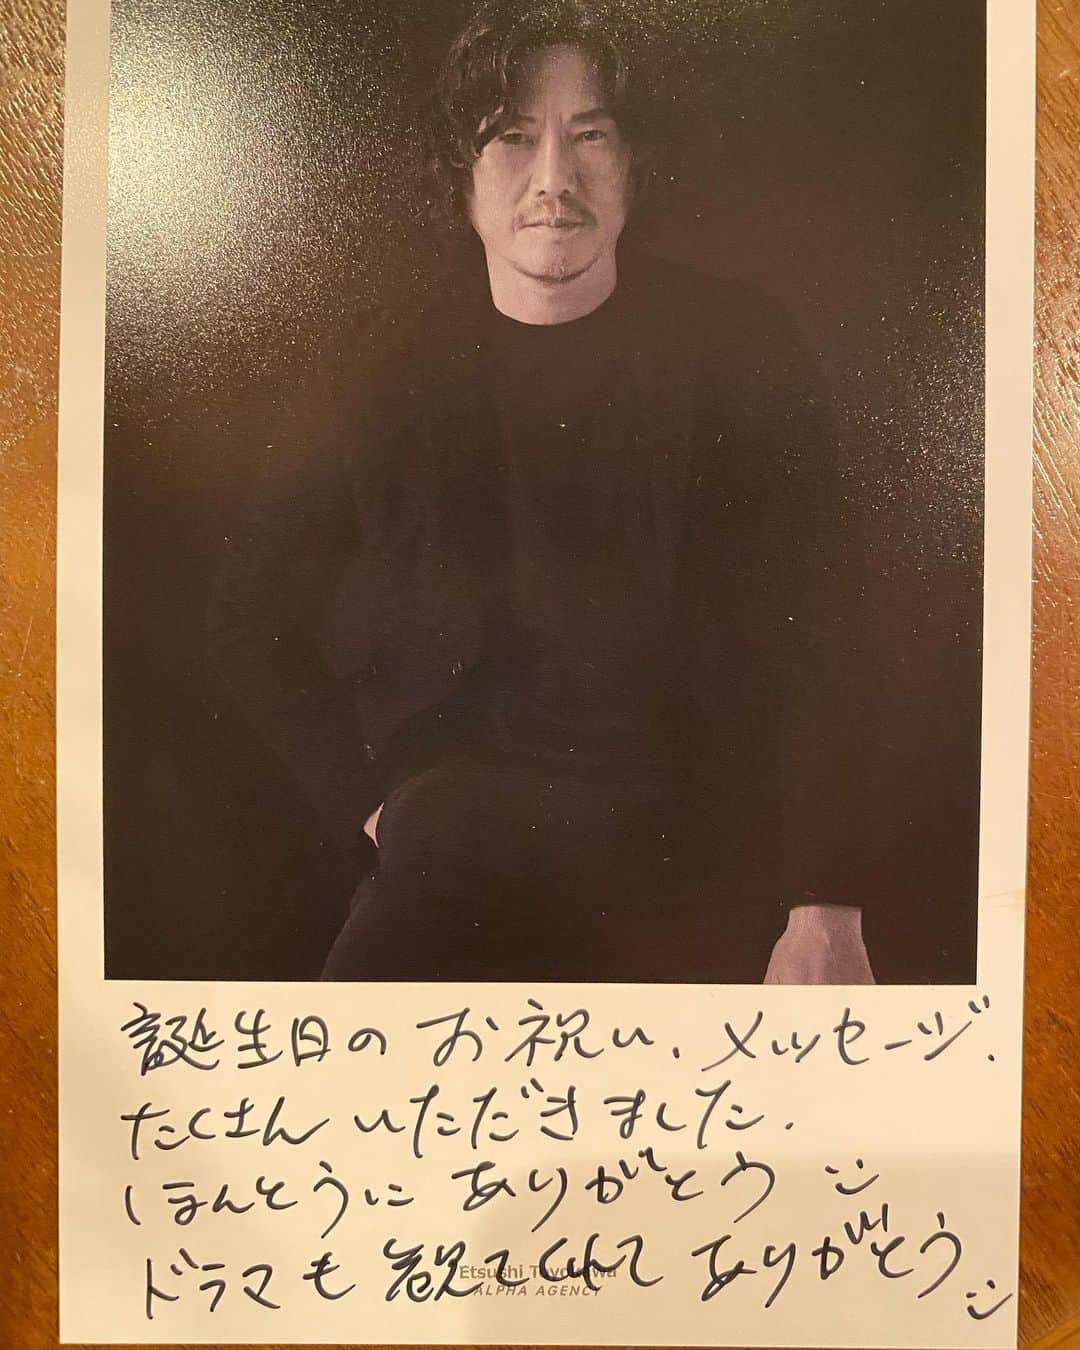 誕生日の お祝い、メッセージ、
たくさん いただきました.
ほんとうに ありがとう :)
ドラマも 観てくれて ありがとう :)
Etsushi Toyokawa
ALPHA AGENCY